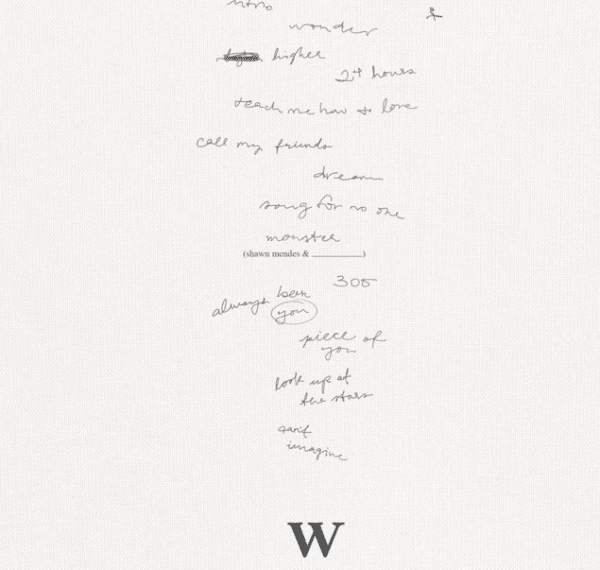 intro
wonder
higher
24 hours
teach me how to love
call my friends
dream
song for no one
monster
(shawn mendes & ____________)
305
always been
you
piece of
you
look up at
the stars
can't
imagine
W